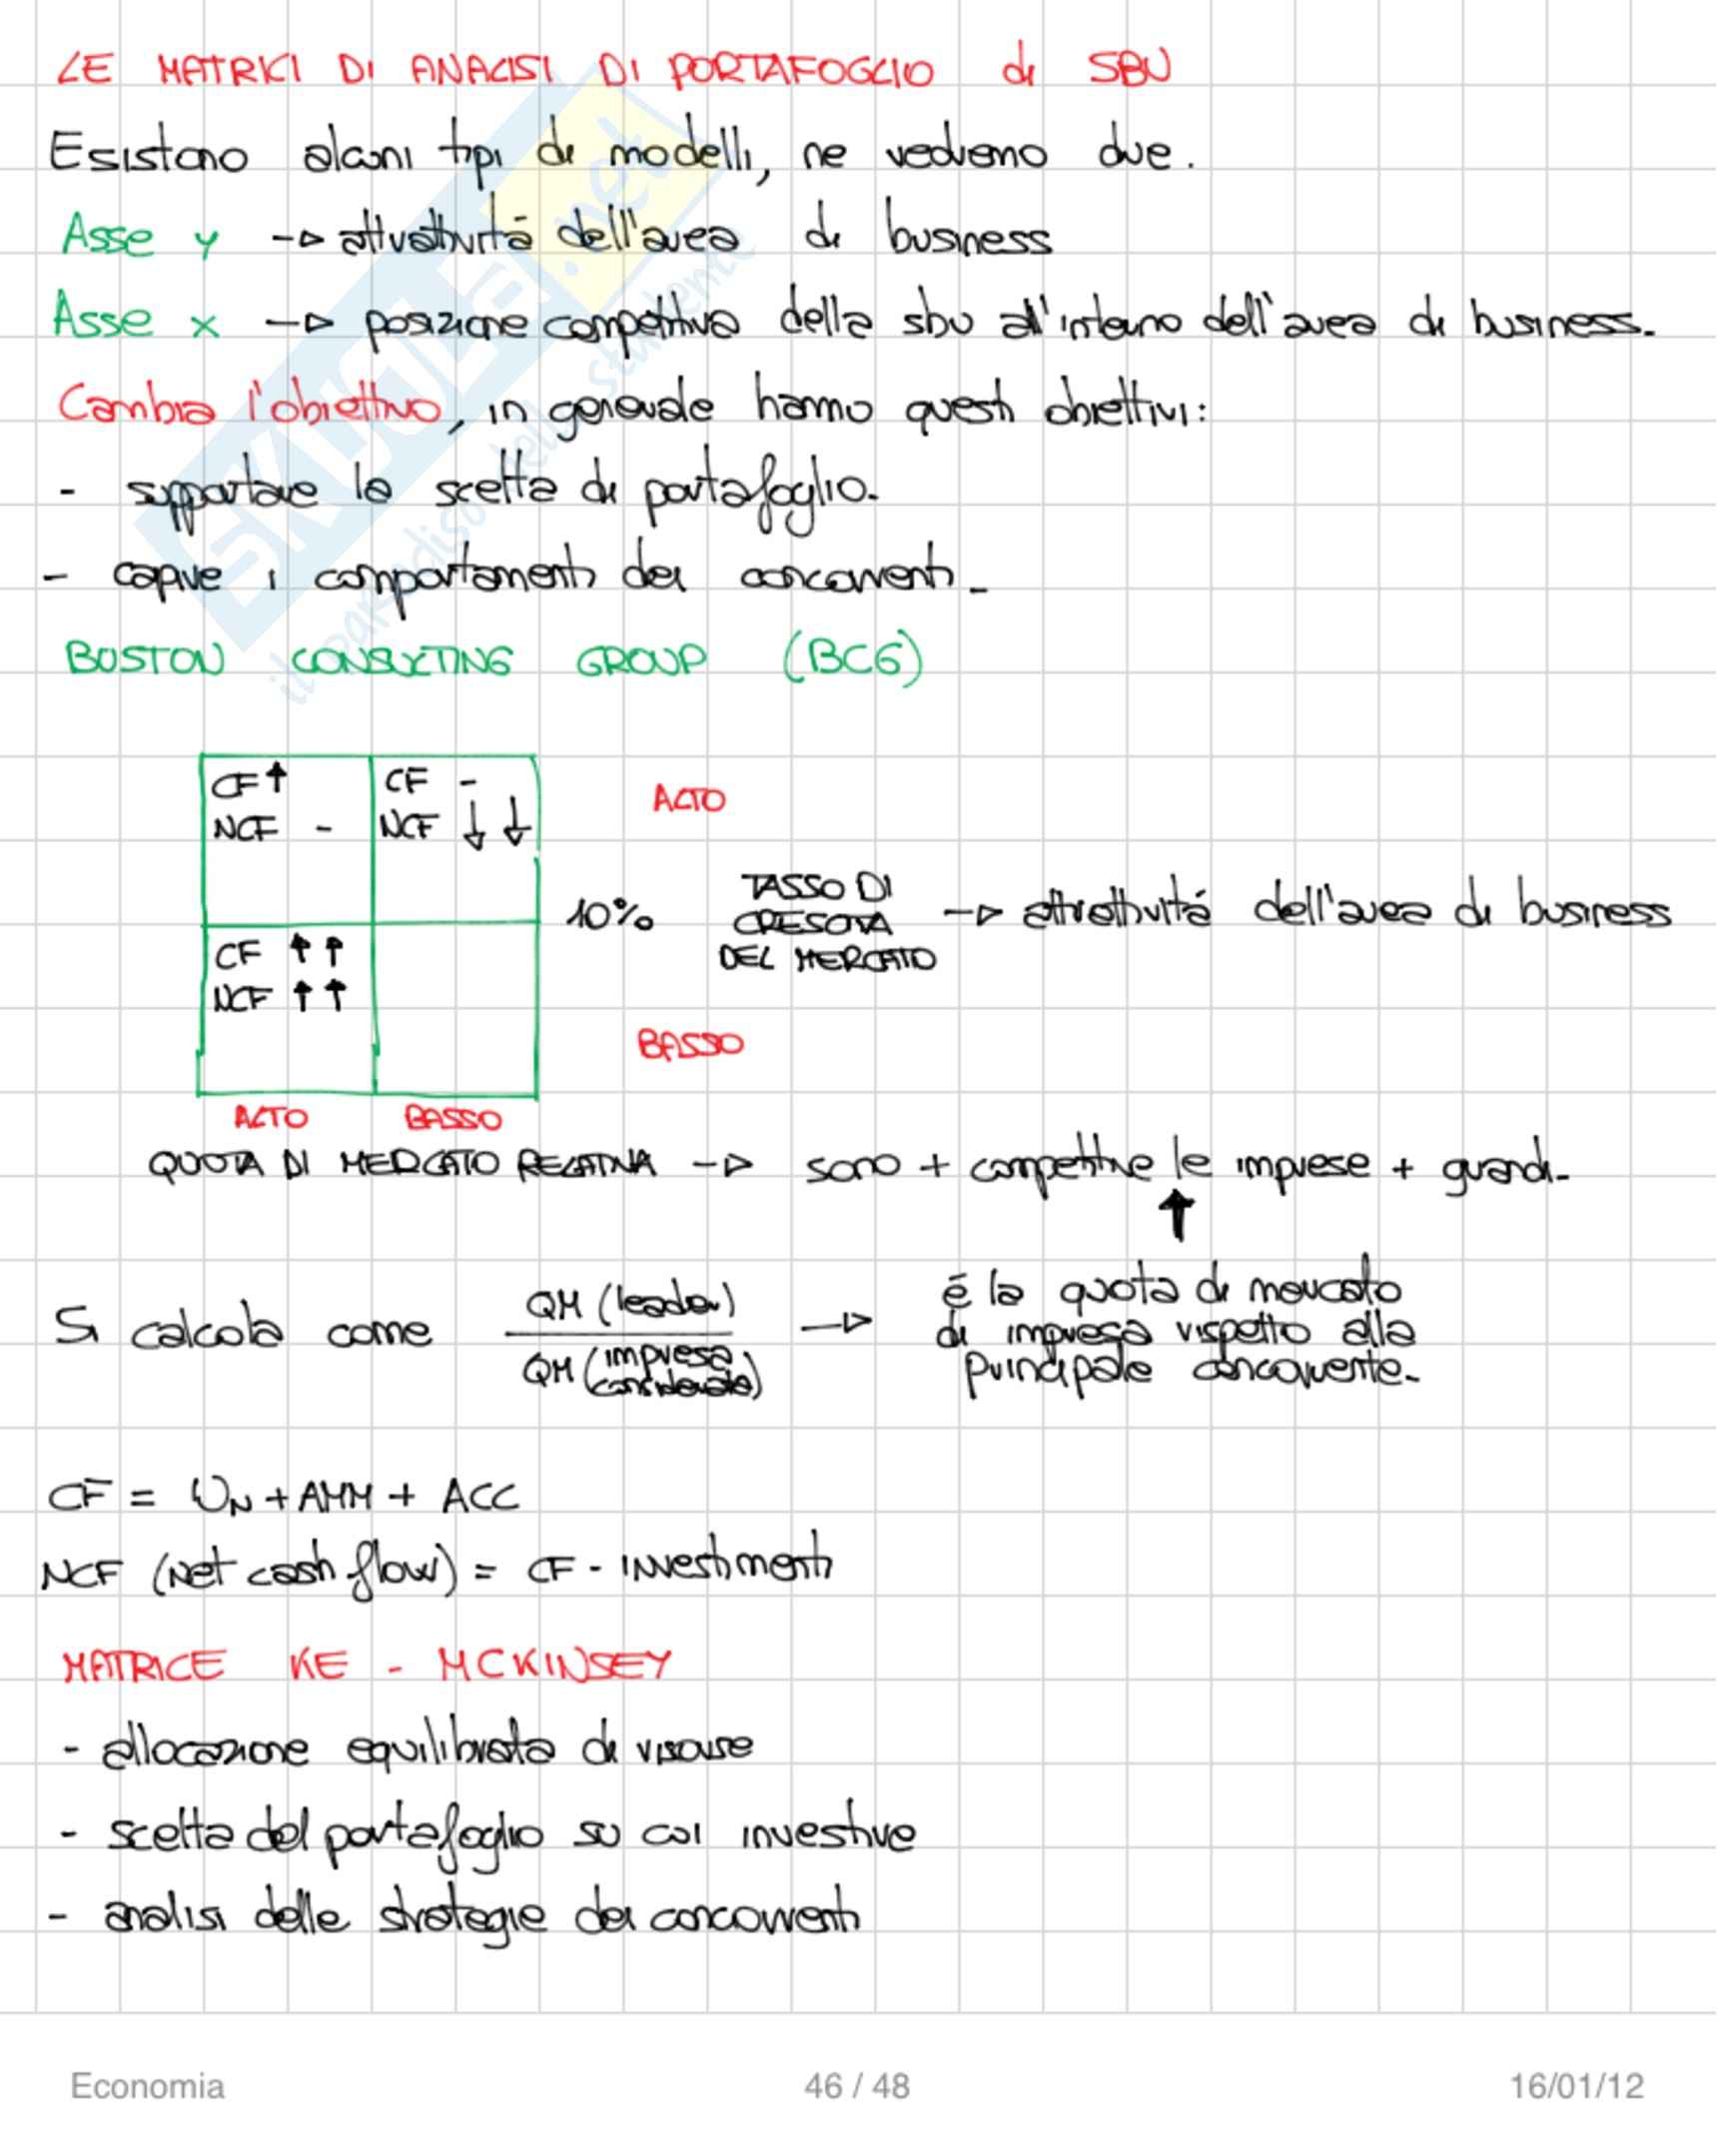 LE MATRICI DI ANALISI DI PORTAFOGLIO di SBU
Esistono alcuni tipi di modelli, ne vedremo due.
Asse y -> attrattività dell'area di business
Asse x -> posizione competitiva della sbu all'interno dell'area di business.
Cambia l'obiettivo, in generale hanno questi obiettivi:
- supportare la scelta di portafoglio.
- capire i comportamenti dei concorrenti.
BOSTON CONSULTING GROUP (BCG)
CF ↑ CF - ALTO
NCF - NCF ↓ ↓
10% TASSO DI CRESCITA DEL MERCATO -> attrattività dell'area di business
CF ↑ ↑
NCF ↑ ↑
BASSO
ALTO BASSO
QUOTA DI MERCATO RELATIVA -> sono + competitive le imprese + grandi.
↑
Si calcola come QM (leader) / QM (impresa considerata) -> é la quota di mercato
di impresa rispetto alla
principale concorrente.
CF = UN + AMM + ACC
NCF (Net cash flow) = CF - Investimenti
MATRICE KE - MCKINSEY
- allocazione equilibrata di risorse
- scelta del portafoglio su cui investire
- analisi delle strategie dei concorrenti
Economia 46 / 48 16/01/12
SKUOLA.net
il paradiso dello studente